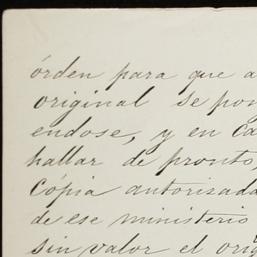 órden para que a
original se pon
endose, y en ca
hallar de pronto,
cópia autorizada
de ese ministerio
sin valor el orig